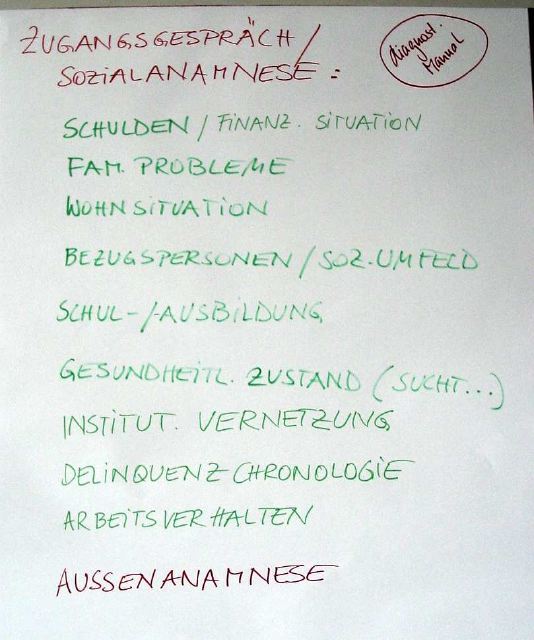 ZUGANGSGESPRÄCH /
SOZIALANAMNESE :
diagnost.
Manual
SCHULDEN / FINANZ. SITUATION
FAM. PROBLEME
WOHNSITUATION
BEZUGSPERSONEN / SOZ. UMFELD
SCHUL-/AUSBILDUNG
GESUNDHEITL. ZUSTAND (SUCHT...)
INSTITUT. VERNETZUNG
DELINQUENZCHRONOLOGIE
ARBEITSVERHALTEN
AUSSENANAMNESE